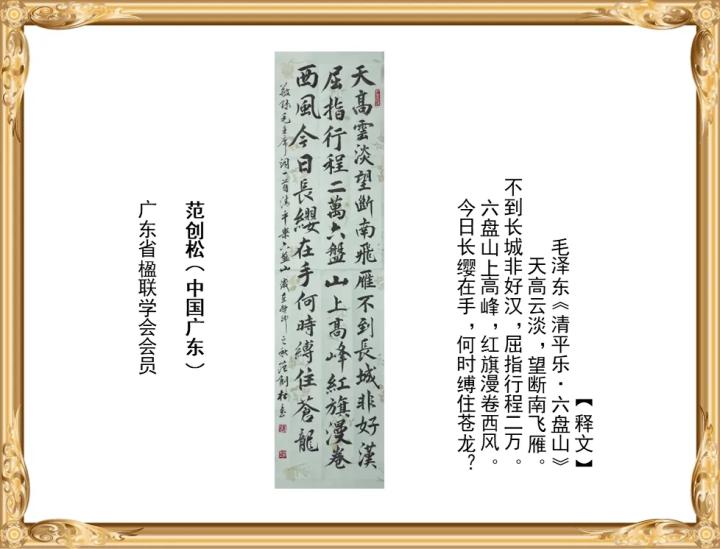 【释文】
毛泽东《清平乐·六盘山》
天高云淡，望断南飞雁。
不到长城非好汉，屈指行程二万。
六盘山上高峰，红旗漫卷西风。
今日长缨在手，何时缚住苍龙？
天高雲淡望斷南飛雁不到長城非好漢
屈指行程二萬六盤山上高峰紅旗漫卷
西風今日長纓在手何時縛住蒼龍
敬錄毛主席詞一首清平樂六盤山歲在之秋范創松書
范创松（中国广东）
广东省楹联学会会员